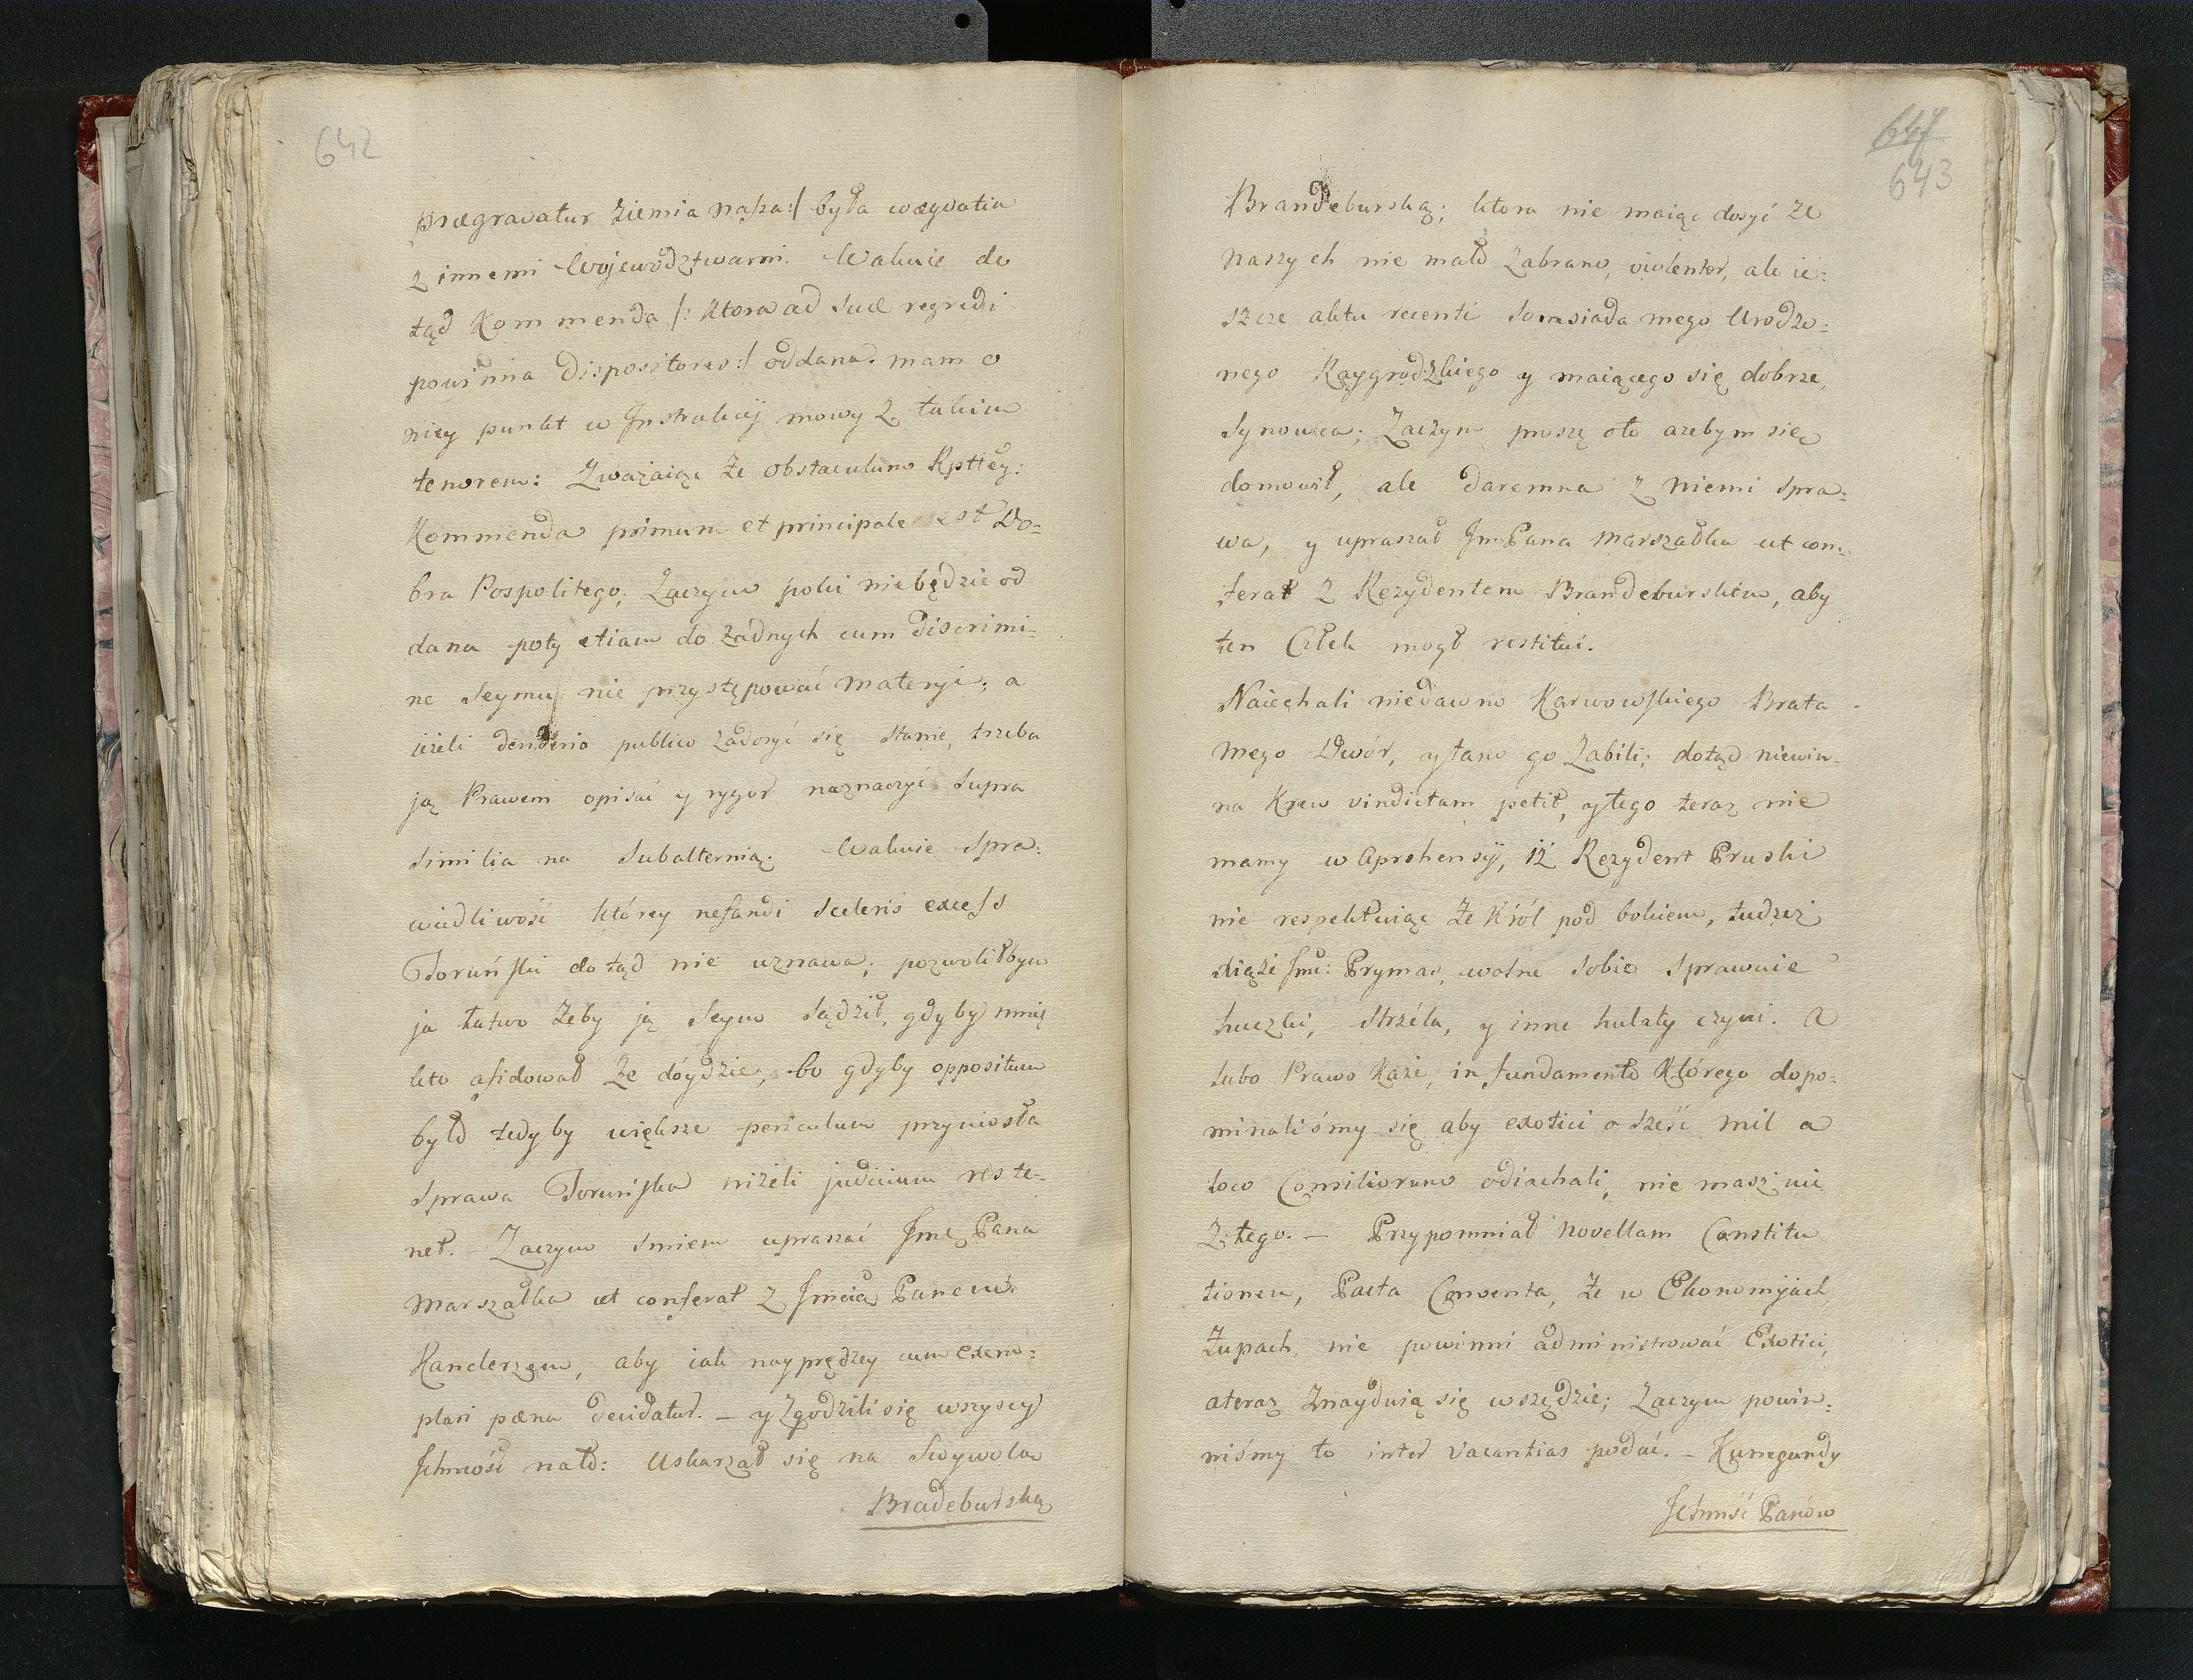 642
prægravatur Ziemia nasza:/ była coæquatia
z innemi Wojewodztwami. Wakuie do
tąd Kommenda /: ktora ad suæ regredi
powinna Dispositores:/ oddana. mam o
niey punkt w Instrukcij mowy z takim
tenorem: Zważaiąc że obstaculum Rpttey:
Kommenda primum et principale est Do-
bra Pospolitego, Zaczym poki niebędzie od
dana poty etiam do żadnych cum discrimi-
ne Seymu nie przystępować materyi; a
ieżeli publico zadosyć się stanie, trzeba
ją Prawem opisać y rygor naznaczyć supra
similia na Subalternią. Wakuie Spra:
wiedliwość ktorey nefandi sceleris excess
Toruński dotąd nie uznawa; pozwoliłbym
ja łatwo żeby ją Seym sądził, gdyby mnię
kto asidował że dóydzie, bo gdyby oppositum
było tedyby większe periculum przyniosła
sprawa Toruńska niżeli judicium res te-
net. – Zaczym smiem upraszać Jmę Pana
Marszałka ut conferat z Jmcią Panem
Kanclerzem, aby iak nayprędzey cum exem:
plari pæna decidatur. – y Zgodzili się wszyscy
Ichmość na to: Uskarzał się na Swywolą
Bradeburską
647
643
Brandeburską; ktora nie maiąc dosyć że
naszych nie mało Zabrano, violenter, ale ie:
szcze aktu recenti Somsiada mego Urodzo:
nego Raygrodzkiego y maiącego się dobrze,
Synowca; Zaczym proszę oto azebym się
domowił, ale daremna z niemi spra:
wa, y upraszał JmPana Marszałka ut con:
ferat z Rezydentem Brandeburskim, aby
ten Człek mogł restitui.
Naiechali niedawno Karwowskiego Brata
mego Dwór, y tam go Zabili; dotąd niewin-
na Krew vindictam petit, y tego teraz nie
mamy w Aprehensÿ, iż Rezydent Pruski
nie respektuiąc że Król pod bokiem, tudzież
xiąże Jmć: Prymas, wolne sobie sprawuie
huczki, strzéla, y inne hulaty czyni. A
lubo Prawo Każe, in fundamento Którego dopo:
minaliśmy się aby exotici o sześć mil a
loco Consiliorum odiachali, nie masz nic
z tego. – Przypomniał novellam Constitu
tionem, Pacta Conventa, że w Ekonomijach,
Żupach nie powinni administrować Exotici,
a teraz Znayduią się wszędzie; Zaczym powin:
niśmy to inter vacantias podać. – Kunegundy
Ichmść Panów